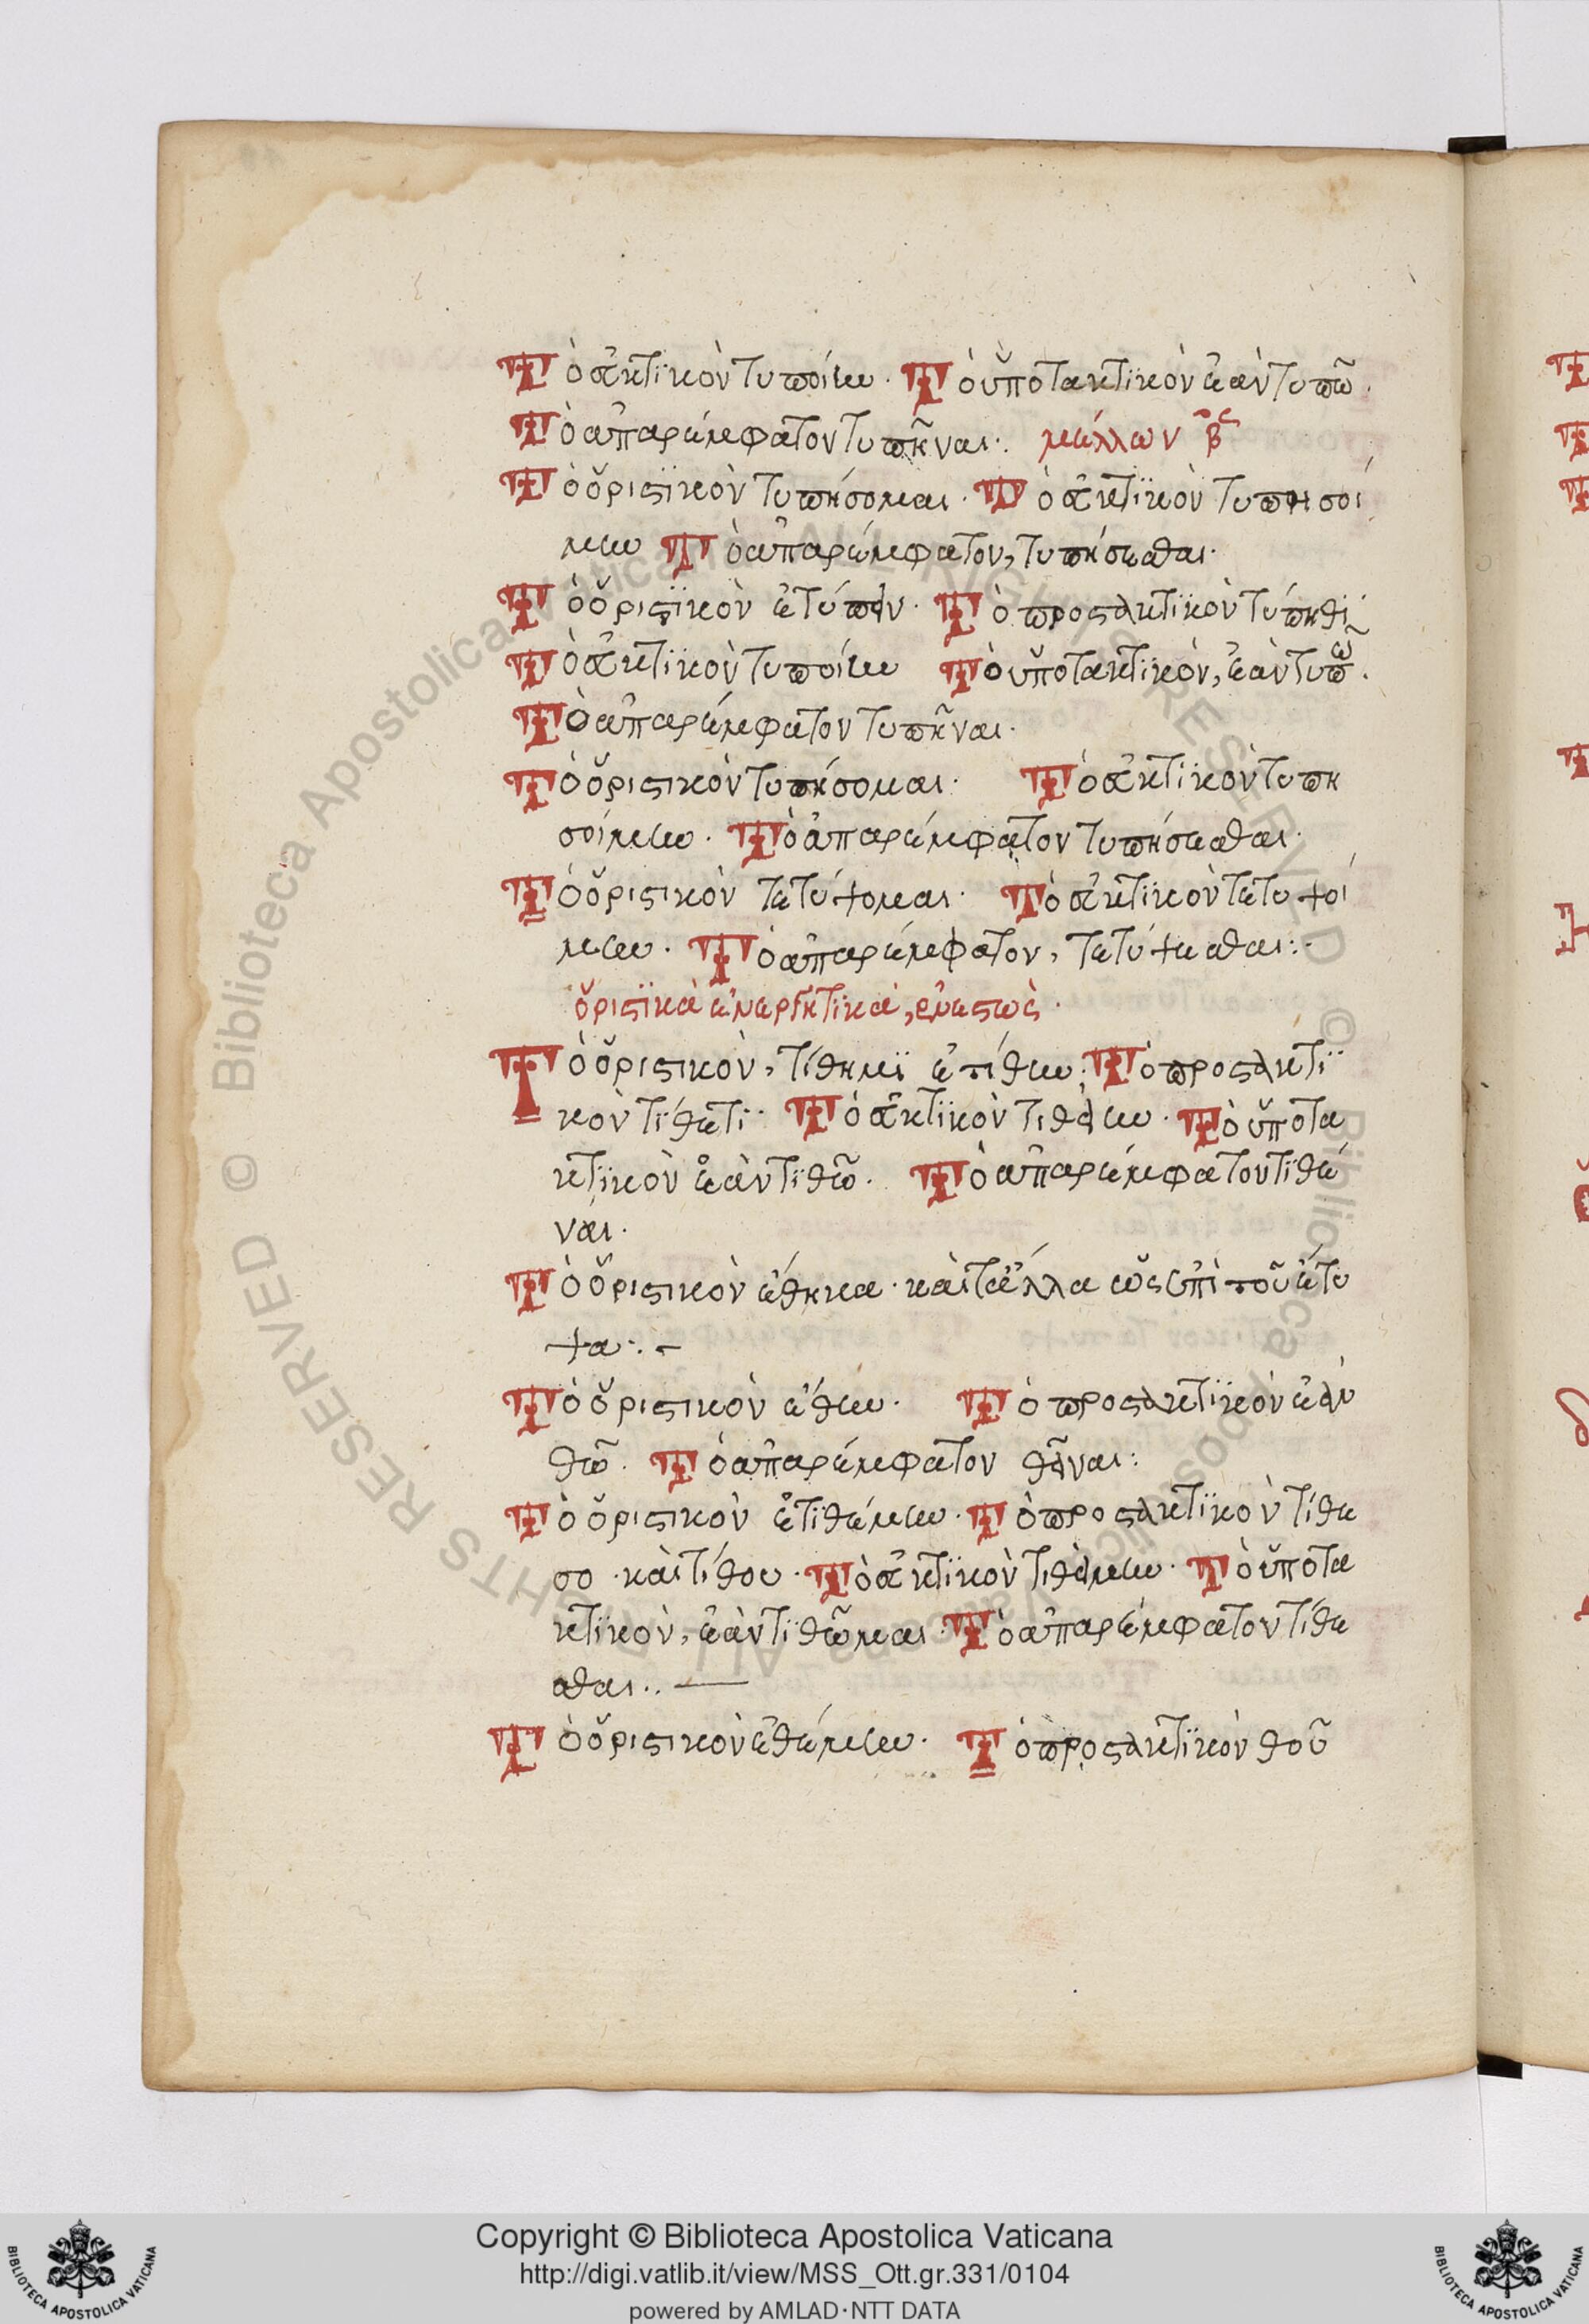 Τὸ εὐκτικὸν τυποίην. Τὸ ὑποτακτικὸν ἐὰν τυπῶ.
Τὸ ἀπαρέμφατον τυπῆναι: μέλλων β
Τὸ ὁριστικὸν τυπήσομαι. Τὸ εὐκτικὸν τυπησοί
μην Τὸ ἀπαρέμφατον, τυπήσεσθαι.
Τὸ ὁριστικὸν ἐτύπην. Τὸ προστακτικὸν τύπηθι
Τὸ εὐκτικὸν τυποίην Τὸ ὑποτακτικὸν, ἐὰν τυπῶ.
Τὸ ἀπαρέμφατον τυπῆναι.
Τὸ ὁριστικὸν τυπήσομαι. Τὸ εὐκτικὸν τυπη
σοίμην. Τὸ ἀπαρέμφατον τυπήσεσθαι.
Τὸ ὁριστικὸν τετύψομαι. Τὸ εὐκτικὸν τετυψοί
μην. Τὸ ἀπαρέμφατον, τετύψεσθαι:
ὁριστικὰ ἐνεργητικὰ, ἐνεστὼς.
Τὸ ὁριστικὸν, τίθημι ἐτίθην: Τὸ προστακτι
κὸν τίθετι. Τὸ εὐκτικὸν τιθείην. Τὸ ὑποτα
κτικὸν ἐὰν τιθῶ. Τὸ ἀπαρέμφατον τιθέ
ναι.
Τὸ ὁριστικὸν ἔθηκα. καὶ τἄλλα ὡς ἐπὶ τοῦ ἔτυ
ψα:
Τὸ ὁριστικὸν ἔθην. Τὸ προστακτικὸν ἐὰν
θῶ. Τὸ ἀπαρέμφατον θεῖναι:
Τὸ ὁριστικὸν ἐτιθέμην. Τὸ προστακτικὸν τίθε
σο. καὶ τίθου. Τὸ εὐκτικὸν τιθείμην. Τὸ ὑποτα
κτικὸν, ἐὰν τιθῶμαι. Τὸ ἀπαρέμφατον τίθε
σθαι..
Τὸ ὁριστικὸν ἐθέμην. Τὸ προστακτικὸν θοῦ
Copyright © Biblioteca Apostolica Vaticana
http://digi.vatlib.it/view/MSS_Ott.gr.331/0104
powered by AMLAD·NTT DATA